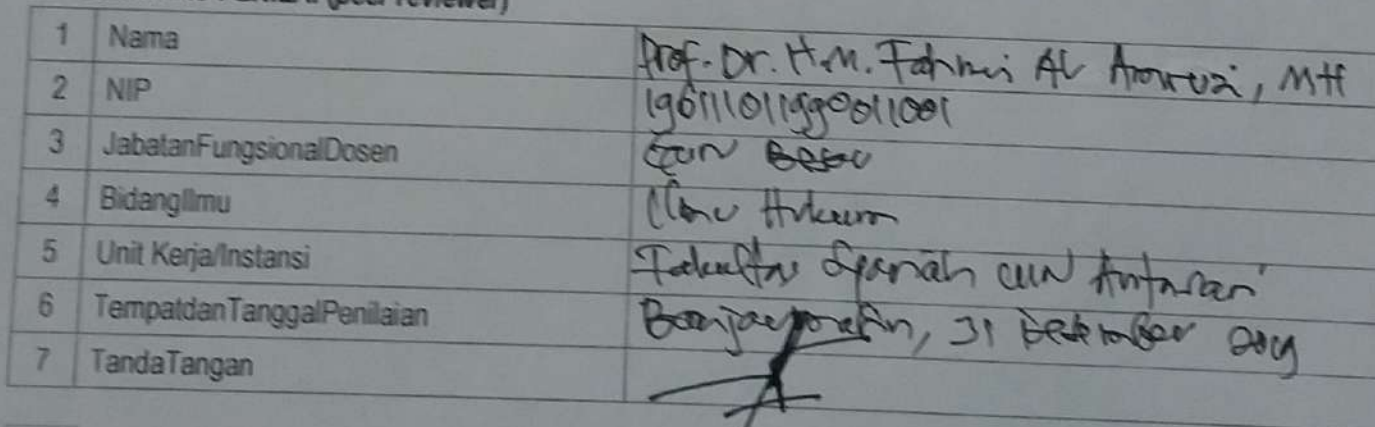 (peer reviewer)
1 Nama Prof. Dr. H.M. Fahmi Al Amruzi, MH
2 NIP
3 JabatanFungsionalDosen Guru Besar
4 BidangIlmu Ilmu Hukum
5 Unit Kerja/Instansi Fakultas Syariah UIN Antasari
6 TempatdanTanggalPenilaian Banjarmasin, 31 Desember
7 TandaTangan